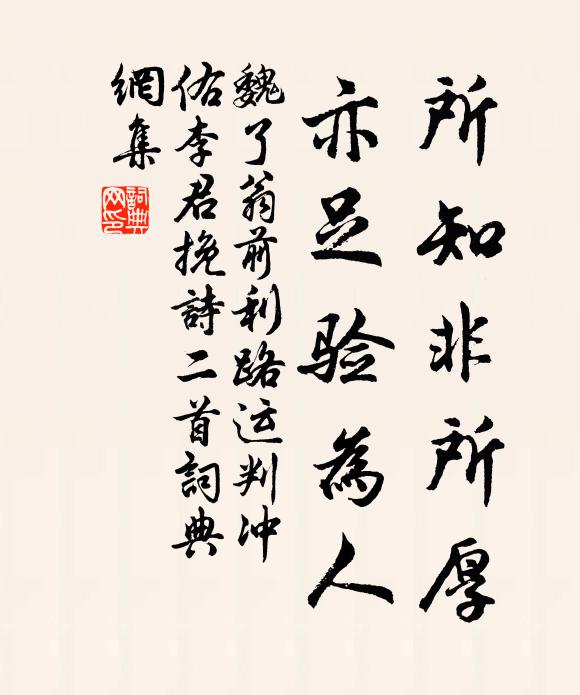 所知非所厚
亦足验為人
魏了翁前利路运判冲
佑李君挽詩二首詞典
網集
詞典
网印